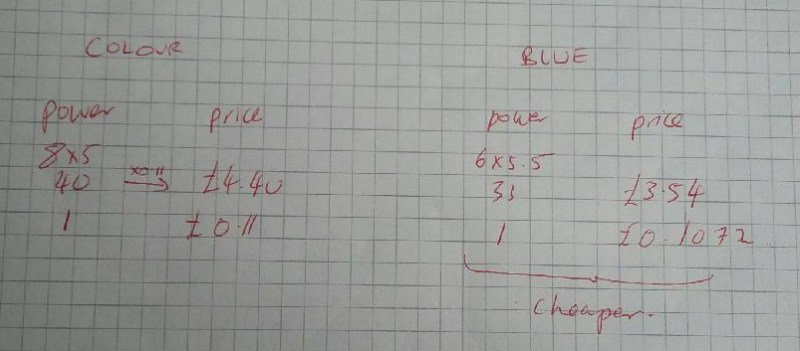 COLOUR
BLUE
power price
8×5
40 ×0.11 → £4.40
1 £0.11
power price
6×5.5
33 £3.54
1 £0.1072
cheaper.